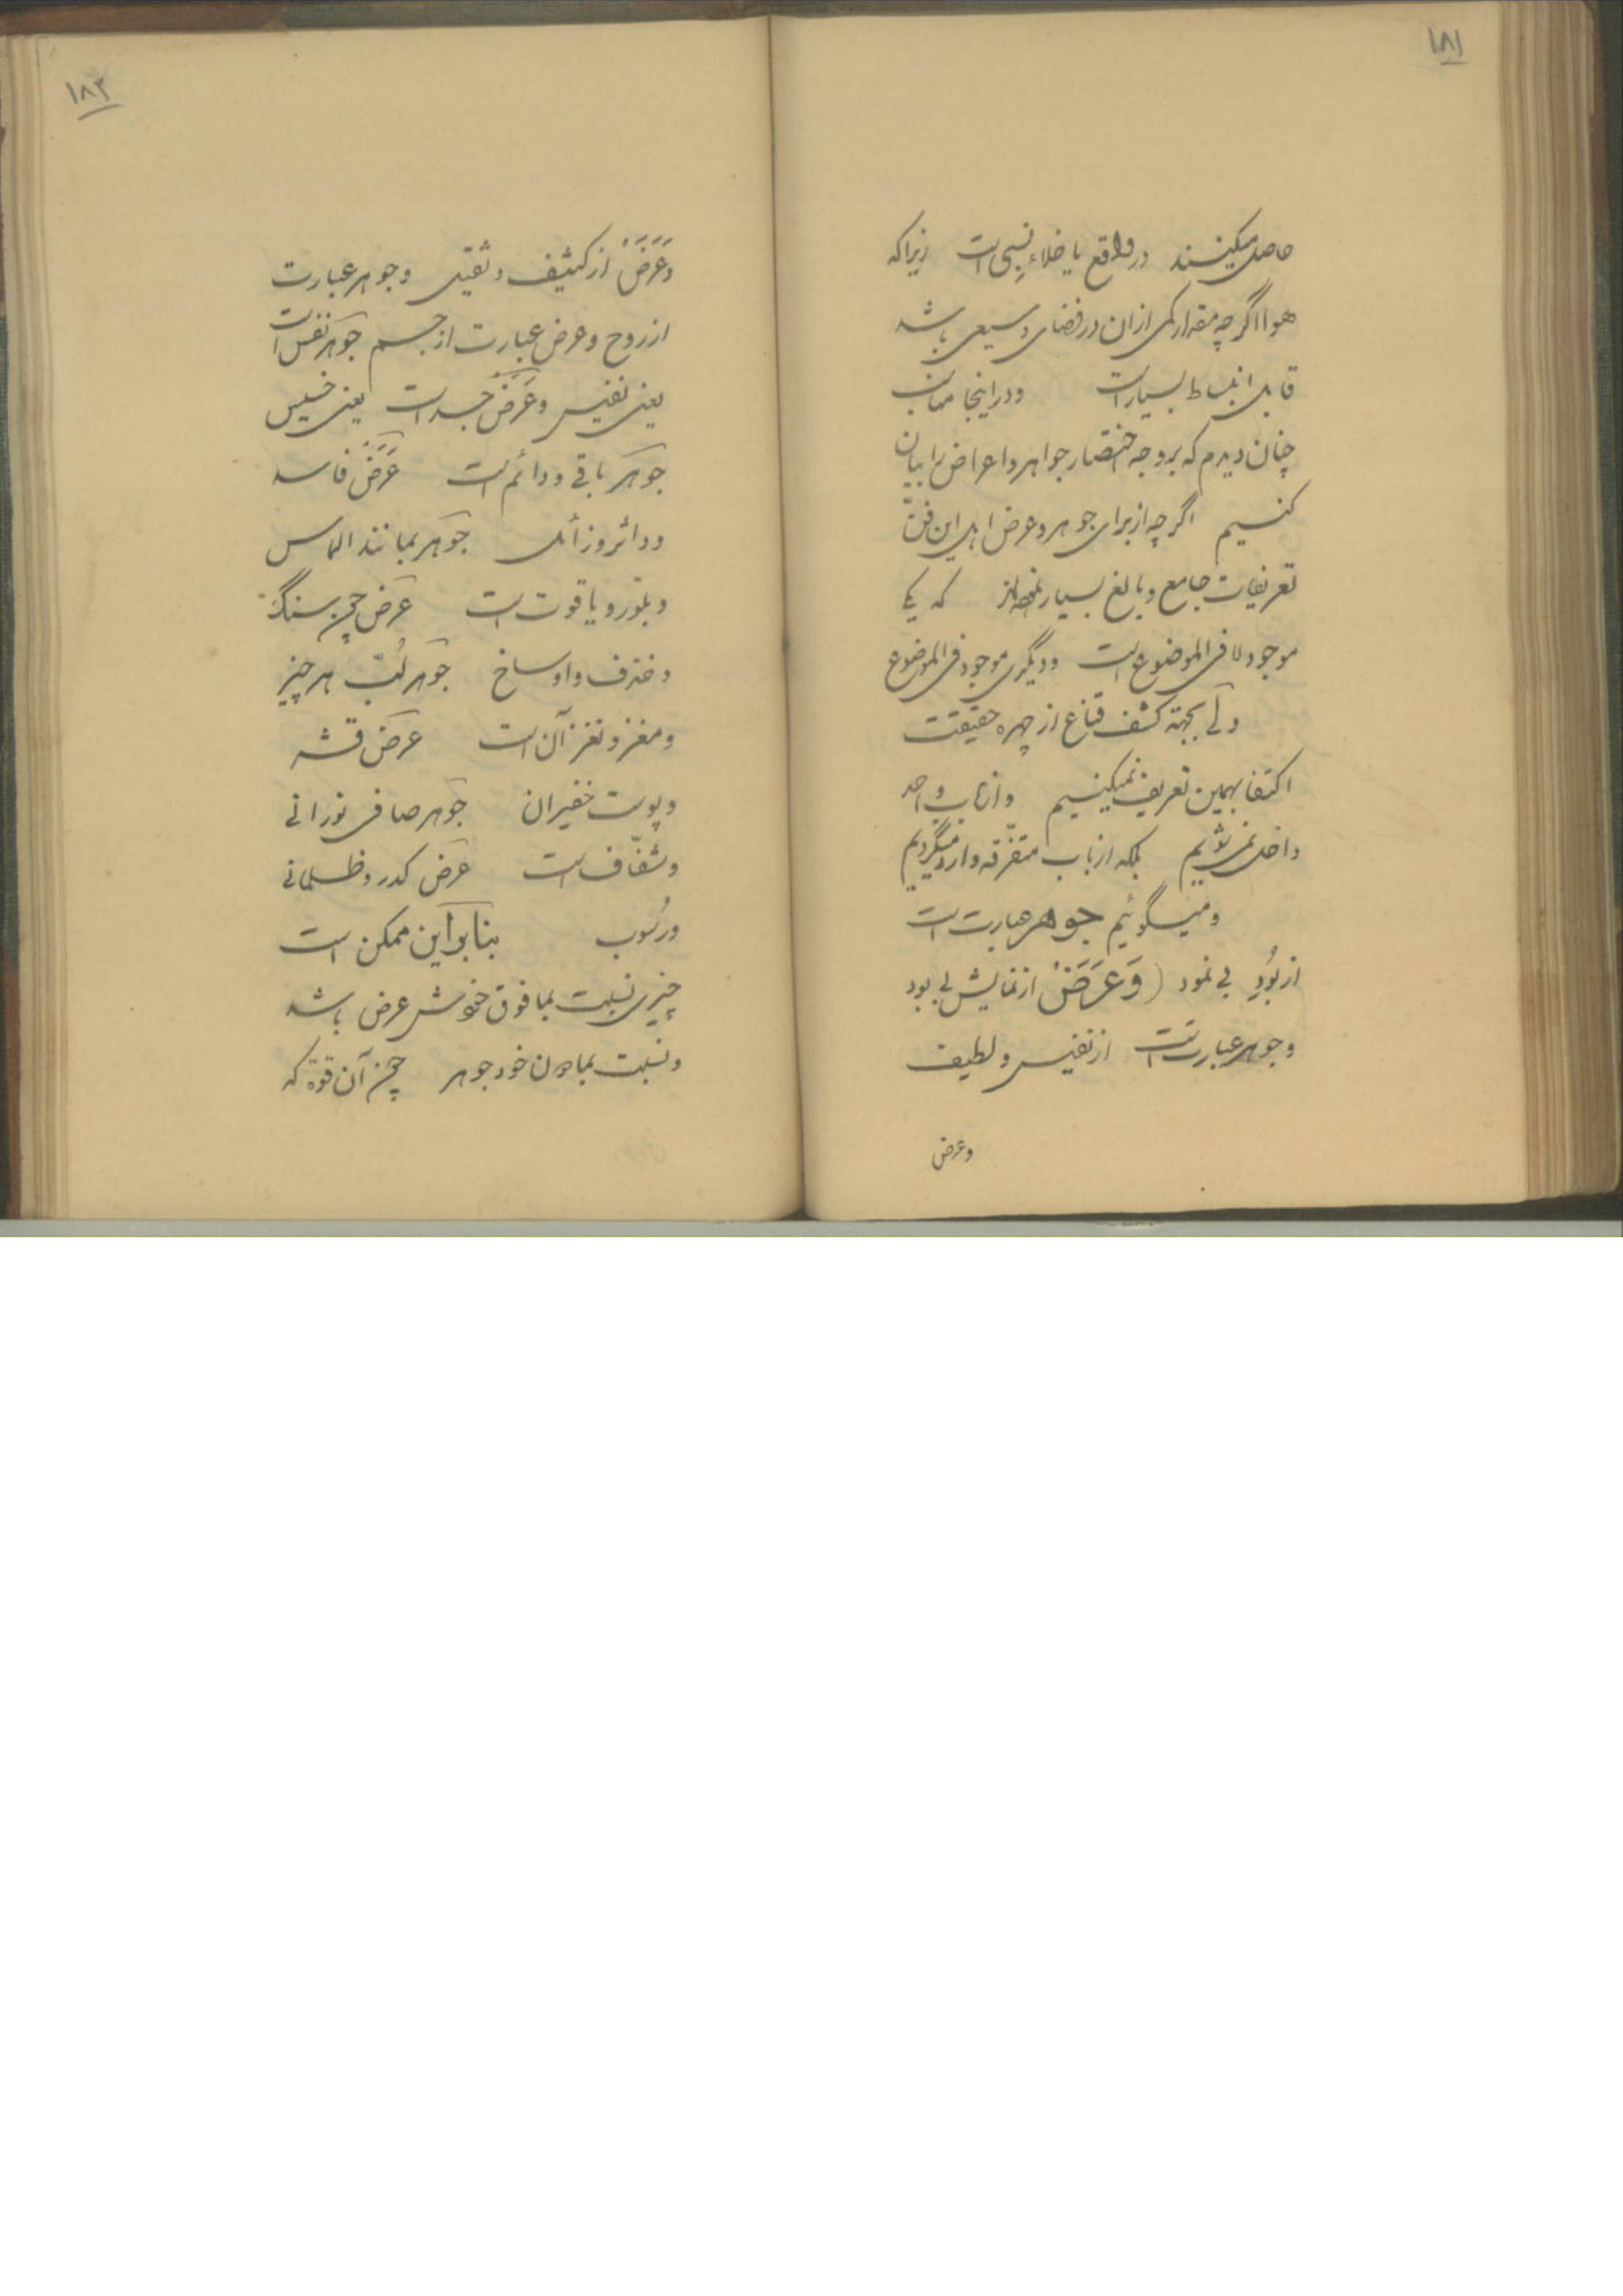 ۱۸۱
حاصل میکنند در واقع یا خلاء نسبی است زیرا که
هوا اگر چه مقدار کمی از ان در فضای وسیعی باشد
قابل انبساط بسیار است و در اینجا
چنان دیدم که بر وجه اختصار جواهر و اعراض را بیان
کنیم اگر چه از برای جوهر و عرض اهل این فنّ
تعریفات جامع و بالغ بسیار که یکی
موجود لا فی الموضوع است و دیگری موجود فی الموضوع
ولی بجهة کشف قناع از چهره حقیقت
اکتفا بهمین تعریف نمیکنیم و از باب واحد
داخل نمیشویم بلکه از باب متفرّقه وارد میگردیم
و میگوئیم جوهر عبارت است
از بُودِ بی نمود (وَعَرَضْ از نمایش بی بود
و جوهر عبارتست از نفیس و لطیف
وعرض
۱۸۲
وَعَرَضْ از کثیف و ثقیل و جوهر عبارت
از روح و عرض عبارت از جسم جوهر نفس است
یعنی نفیس و عَرَضْ جسد است یعنی خسیس
جوهر باقی و دائم است عَرَضْ فاسد
و داثر و زائل جوهر بمانند الماس
و بلّور و یاقوت است عرض چون سنگ
و خزف و اوساخ جوهر لُبّ هر چیز
و مغز و نغز آن است عرض قشر
و پوست جوهر صافی نورانی
و شفّاف است عرض کدر و ظلمانی
و رسُوب بنابر این ممکن است
چیزی نسبت بمافوق خویش عرض باشد
و نسبت بمادون خود جوهر چون آن قوّة که